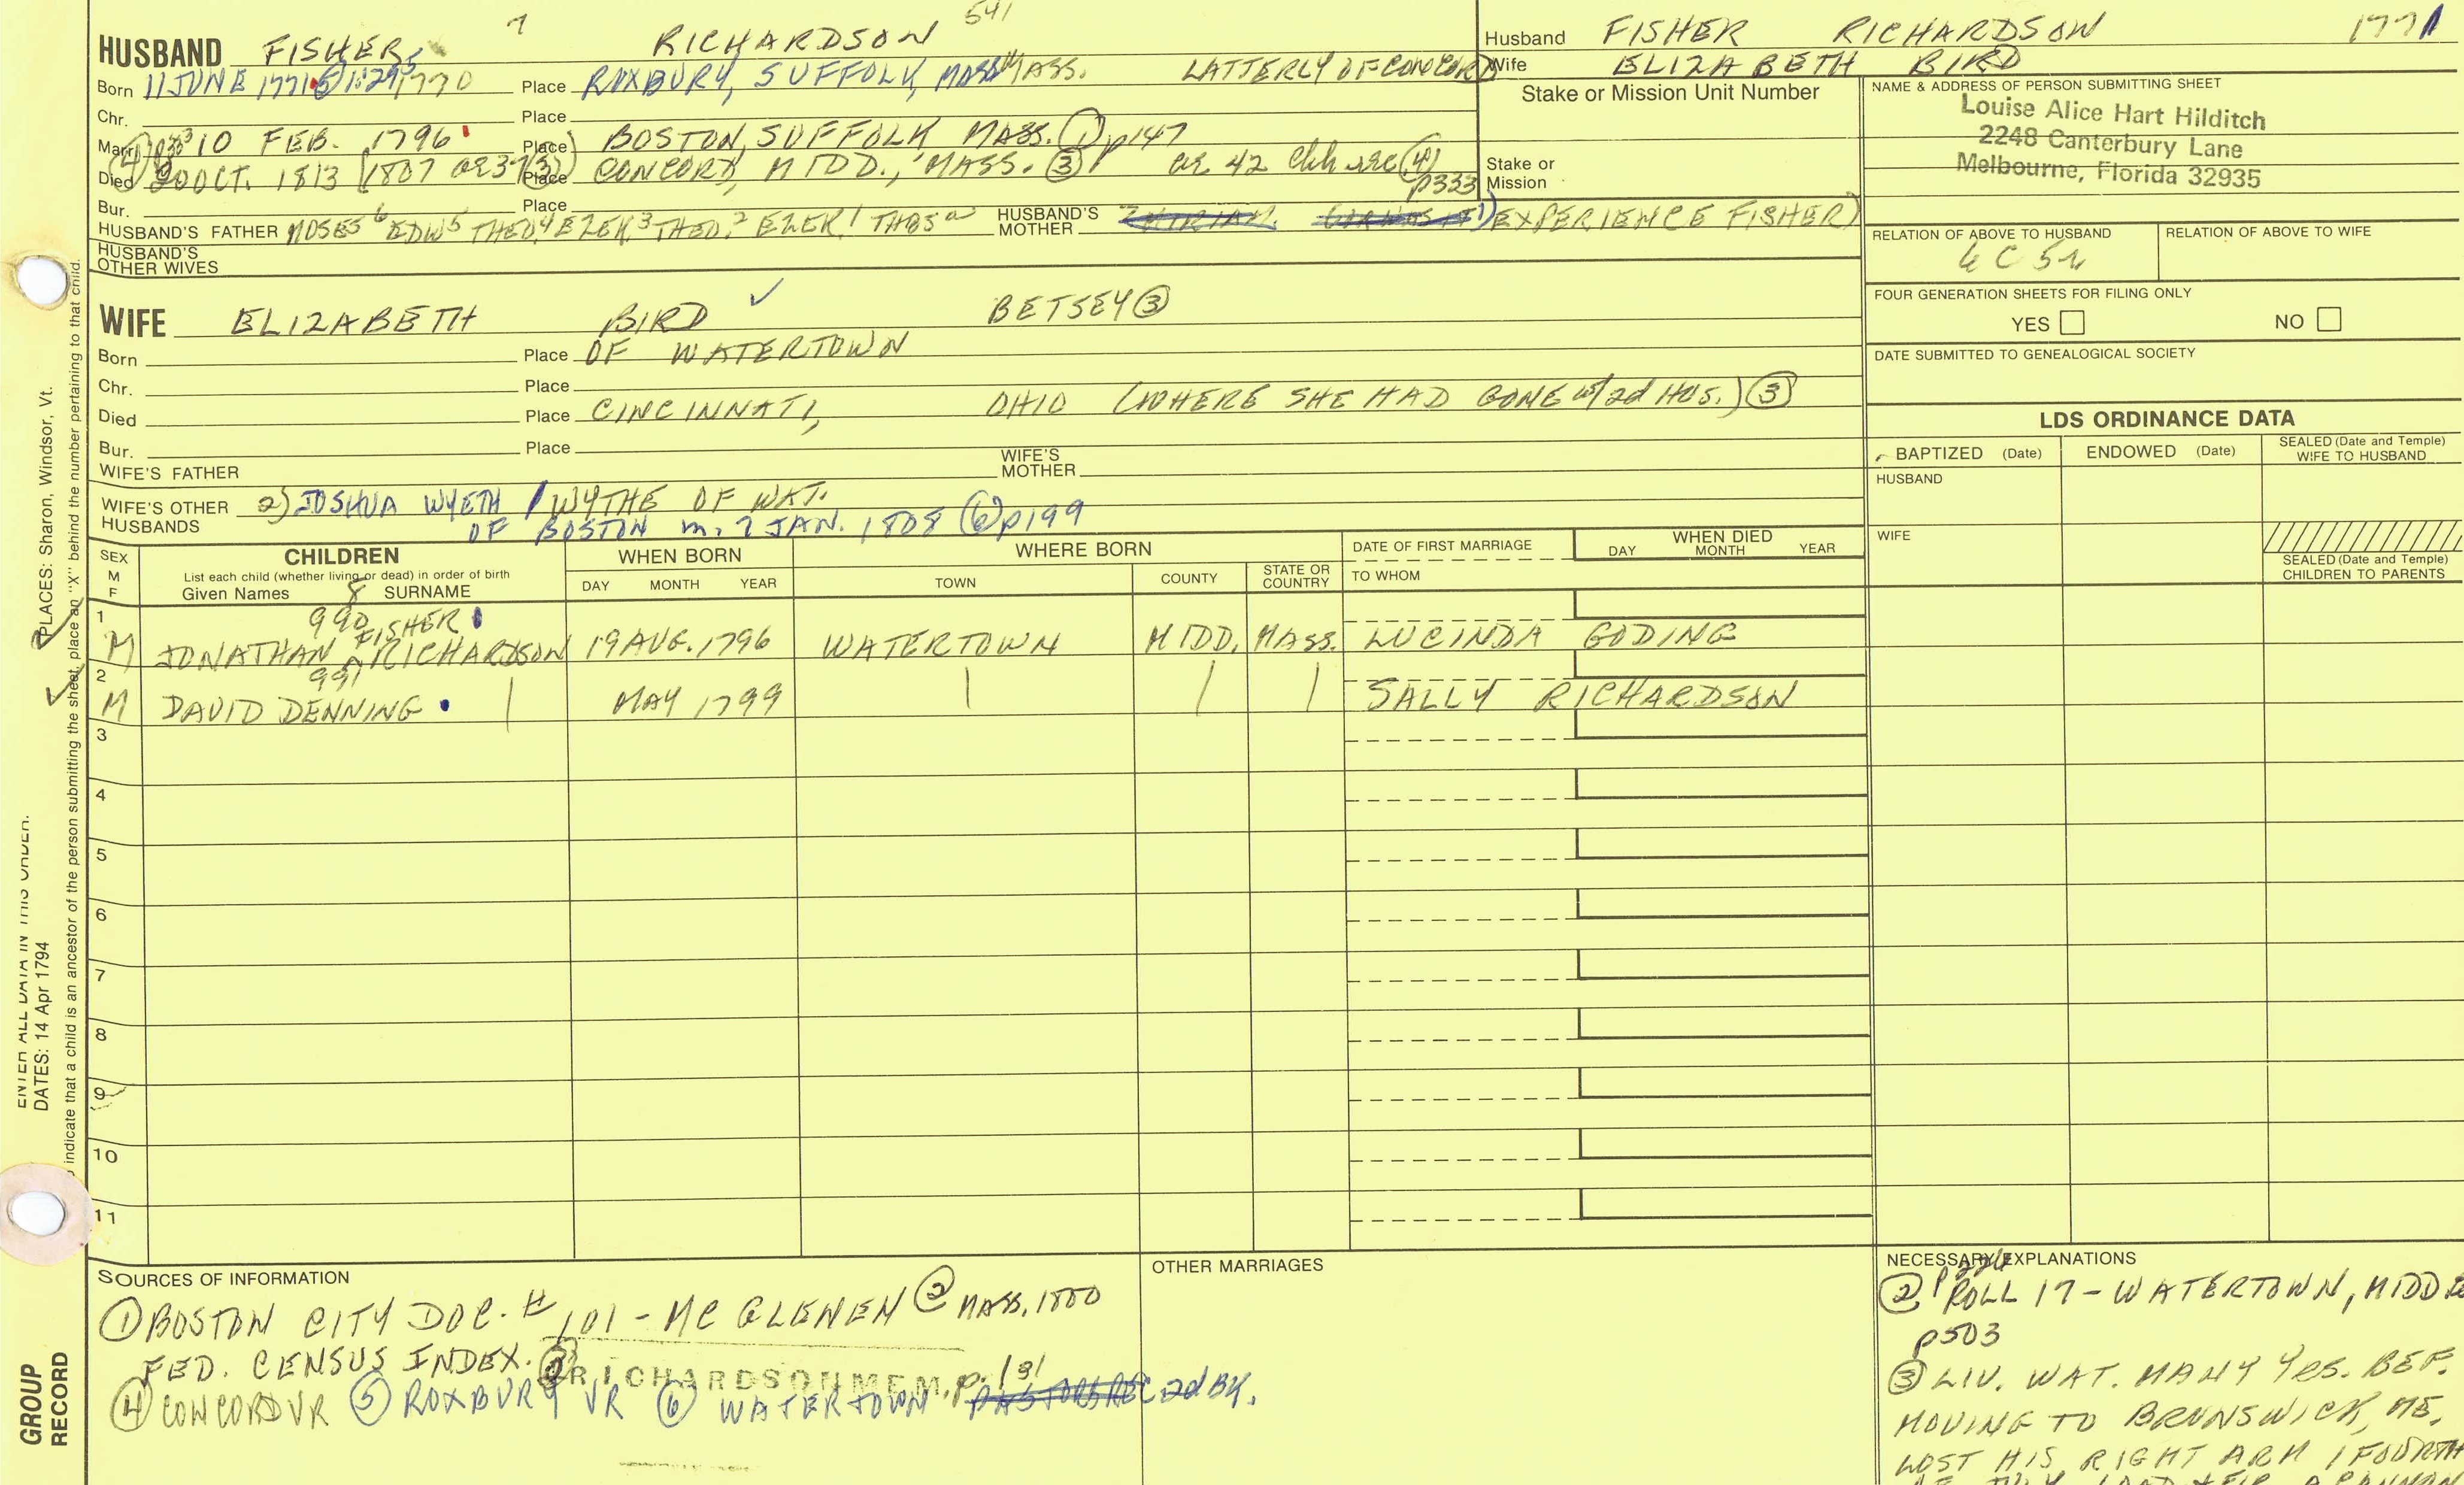 7 541
HUSBAND FISHER RICHARDSON
Born 11 JUNE 1771 1770 Place ROXBURY, SUFFOLK, MASS. LATTERLY OF CONCORD
Chr. Place
Marr. 10 FEB. 1796 Place BOSTON, SUFFOLK MASS. ① p147
Died 20 OCT. 1813 (1807 ae 37 ③) Place CONCORD, MIDD., MASS. ③ ae 42 Chh rec ④ p333
Bur. Place
HUSBAND'S FATHER MOSES 6 EDW 5 THEO. 4 EZEK. 3 THEO. 2 EZEK. 1 THOS a HUSBAND'S MOTHER 1) EXPERIENCE FISHER)
HUSBAND'S OTHER WIVES
WIFE ELIZABETH BIRD ✓ BETSEY ③
Born Place OF WATERTOWN
Chr. Place
Died Place CINCINNATI, OHIO (WHERE SHE HAD GONE w/2d HUS.) ③
Bur. Place
WIFE'S FATHER WIFE'S MOTHER
WIFE'S OTHER HUSBANDS 2) JOSHUA WYETH / WYTHE OF WAT.
OF BOSTON m. 7 JAN. 1808 ⑥ p199
Husband FISHER RICHARDSON 1771
Wife ELIZABETH BIRD
Stake or Mission Unit Number
Stake or Mission
NAME & ADDRESS OF PERSON SUBMITTING SHEET
Louise Alice Hart Hilditch
2248 Canterbury Lane
Melbourne, Florida 32935
RELATION OF ABOVE TO HUSBAND RELATION OF ABOVE TO WIFE
6C 5r
FOUR GENERATION SHEETS FOR FILING ONLY
YES NO
DATE SUBMITTED TO GENEALOGICAL SOCIETY
LDS ORDINANCE DATA
BAPTIZED (Date) ENDOWED (Date) SEALED (Date and Temple) WIFE TO HUSBAND
HUSBAND
WIFE
SEALED (Date and Temple) CHILDREN TO PARENTS
SEX M F CHILDREN WHEN BORN WHERE BORN DATE OF FIRST MARRIAGE WHEN DIED
List each child (whether living or dead) in order of birth
Given Names 8 SURNAME DAY MONTH YEAR TOWN COUNTY STATE OR COUNTRY TO WHOM DAY MONTH YEAR
1 990 FISHER
M JONATHAN ^ RICHARDSON 19 AUG. 1796 WATERTOWN MIDD. MASS. LUCINDA GODING
2 991
M DAVID DENNING | MAY 1799 | | | SALLY RICHARDSON
3
4
5
6
7
8
9
10
11
SOURCES OF INFORMATION
① BOSTON CITY DOC. # 101 - MC GLENEN ② MASS. 1800
FED. CENSUS INDEX. ③ RICHARDSON MEM. p. 131
④ CONCORD VR ⑤ ROXBURY VR ⑥ WATERTOWN 2d BK.
OTHER MARRIAGES
NECESSARY EXPLANATIONS
② ROLL 17 - WATERTOWN, MIDD
p503
③ LIV. WAT. MANY YRS. BEF.
MOVING TO BRUNSWICK, ME.
LOST HIS RIGHT ARM 1 FOURTH
PLACES: Sharon, Windsor, Vt.
ENTER ALL DATA IN THIS ORDER:
DATES: 14 Apr 1794
indicate that a child is an ancestor of the person submitting the sheet, place an "X" behind the number pertaining to that child.
GROUP
RECORD